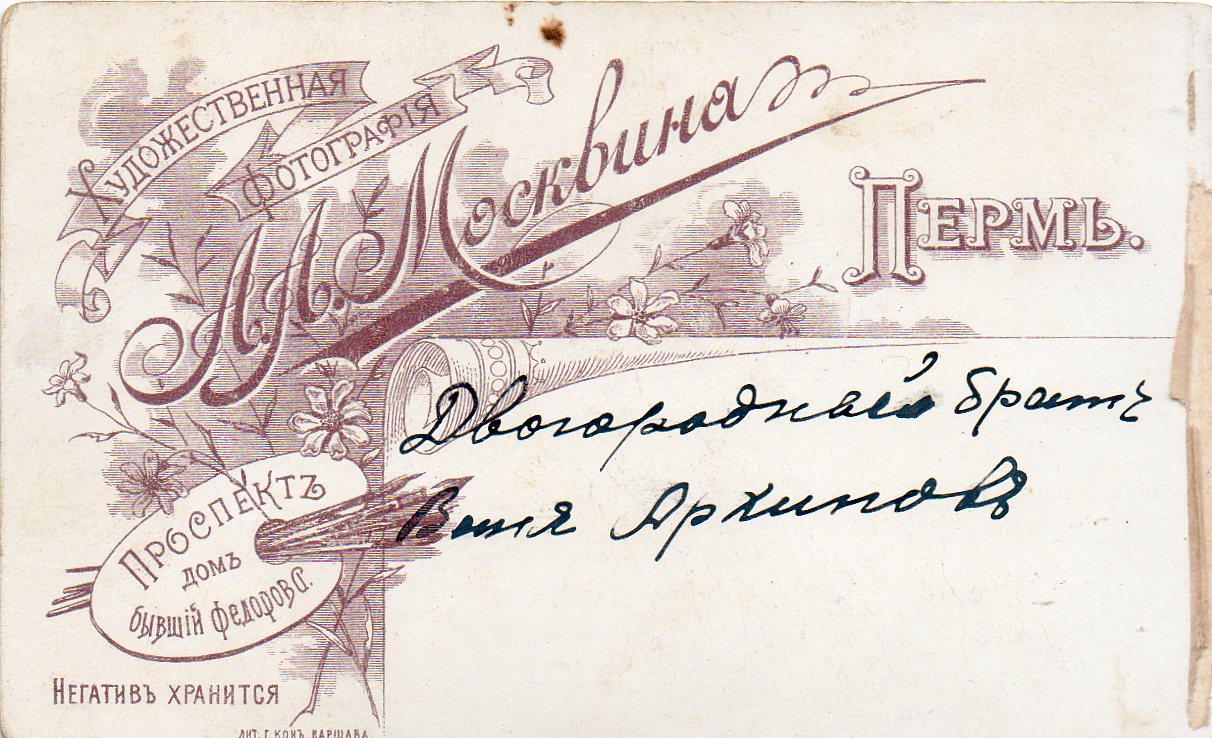 Художественная
Фотографія
А. А. Москвина
Пермь.
Двоюродный братъ
Ваня Архиповъ
Проспектъ
домъ
бывшій Федоровъ С.
Негативъ хранится
Лит. Г. Конъ. Варшава